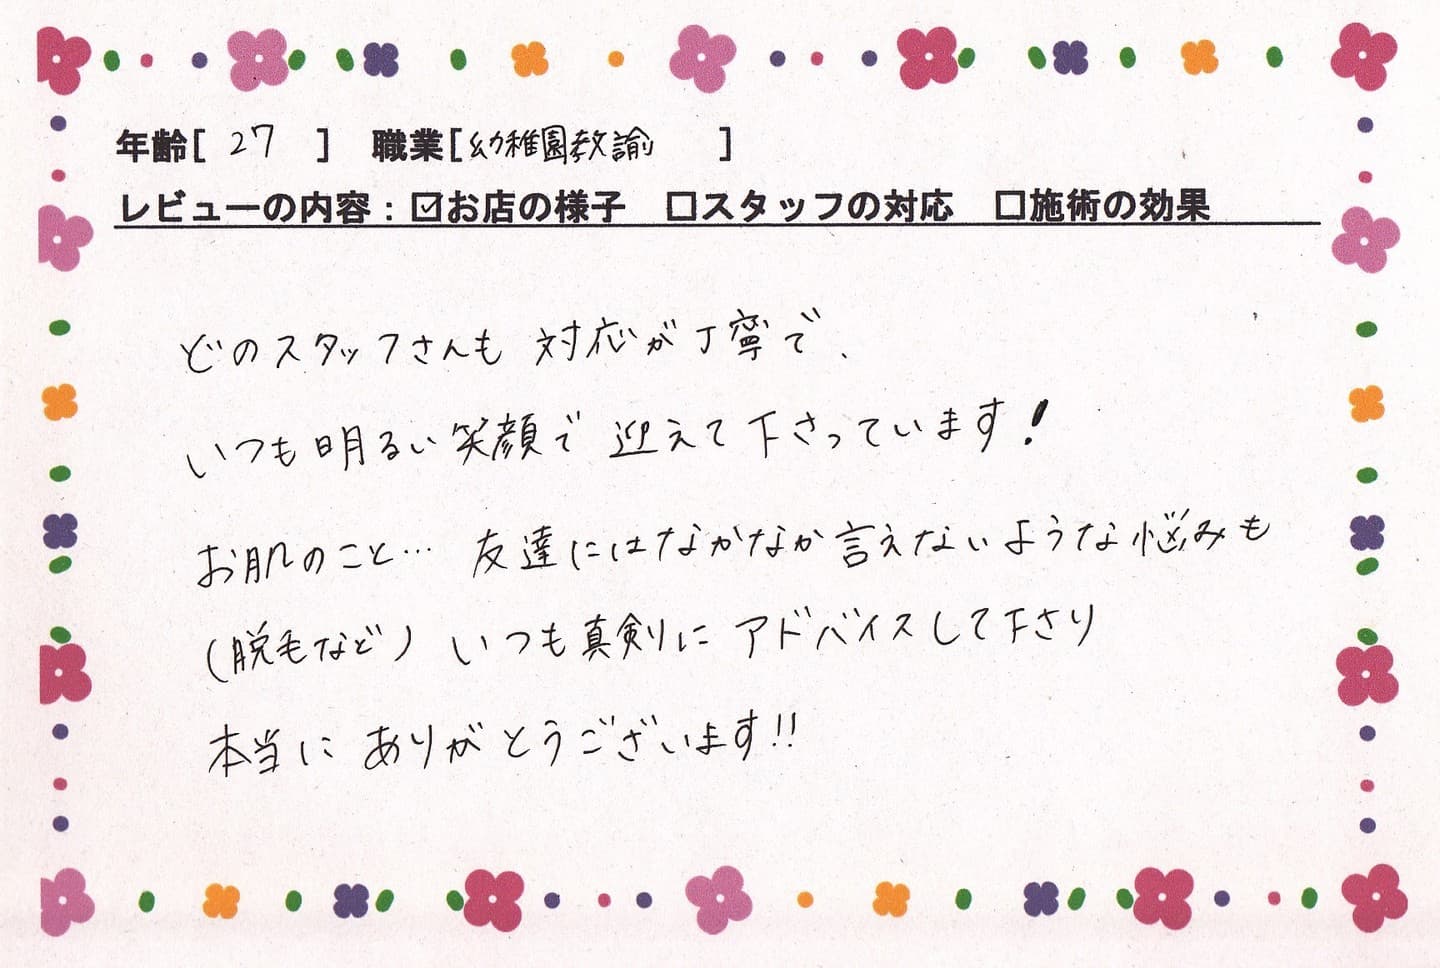 年齢[ 27 ] 職業[幼稚園教諭 ]
レビューの内容:☑お店の様子 □スタッフの対応 □施術の効果
どのスタッフさんも 対応が丁寧で、
いつも明るい笑顔で 迎えて下さっています!
お肌のこと… 友達にはなかなか言えないような悩みも
(脱毛など) いつも真剣に アドバイスして下さり
本当に ありがとうございます!!